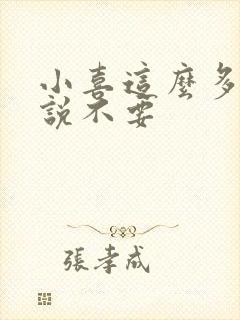 小喜這麼多
說不要
張孝成